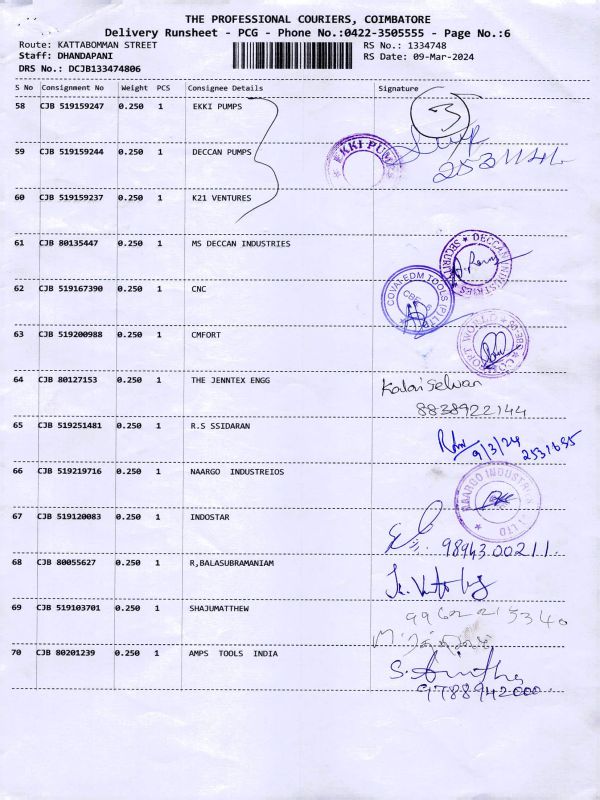 THE PROFESSIONAL COURIERS, COIMBATORE
Delivery Runsheet - PCG - Phone No.:0422-3505555 - Page No.:6
Route: KATTABOMMAN STREET
RS No.: 1334748
Staff: DHANDAPANI
RS Date: 09-Mar-2024
DRS No.: DCJB133474806
S No Consignment No Weight PCS Consignee Details Signature
58 CJB 519159247 0.250 1 EKKI PUMPS
3
EKKI PUM
59 CJB 519159244 0.250 1 DECCAN PUMPS
60 CJB 519159237 0.250 1 K21 VENTURES
61 CJB 80135447 0.250 1 MS DECCAN INDUSTRIES
DECCAN INDUSTRIES SECURITY
62 CJB 519167390 0.250 1 CNC
COVAI EDM TOOLS (P) LTD
CBE
63 CJB 519200988 0.250 1 CMFORT
64 CJB 80127153 0.250 1 THE JENNTEX ENGG
Kalaiselvan
8838922144
65 CJB 519251481 0.250 1 R.S SSIDARAN
9/3/24
66 CJB 519219716 0.250 1 NAARGO INDUSTREIOS
NAARGO INDUSTRI LTD
67 CJB 519120083 0.250 1 INDOSTAR
98943 00211
68 CJB 80055627 0.250 1 R,BALASUBRAMANIAM
69 CJB 519103701 0.250 1 SHAJUMATTHEW
9962215340
70 CJB 80201239 0.250 1 AMPS TOOLS INDIA
9788942000